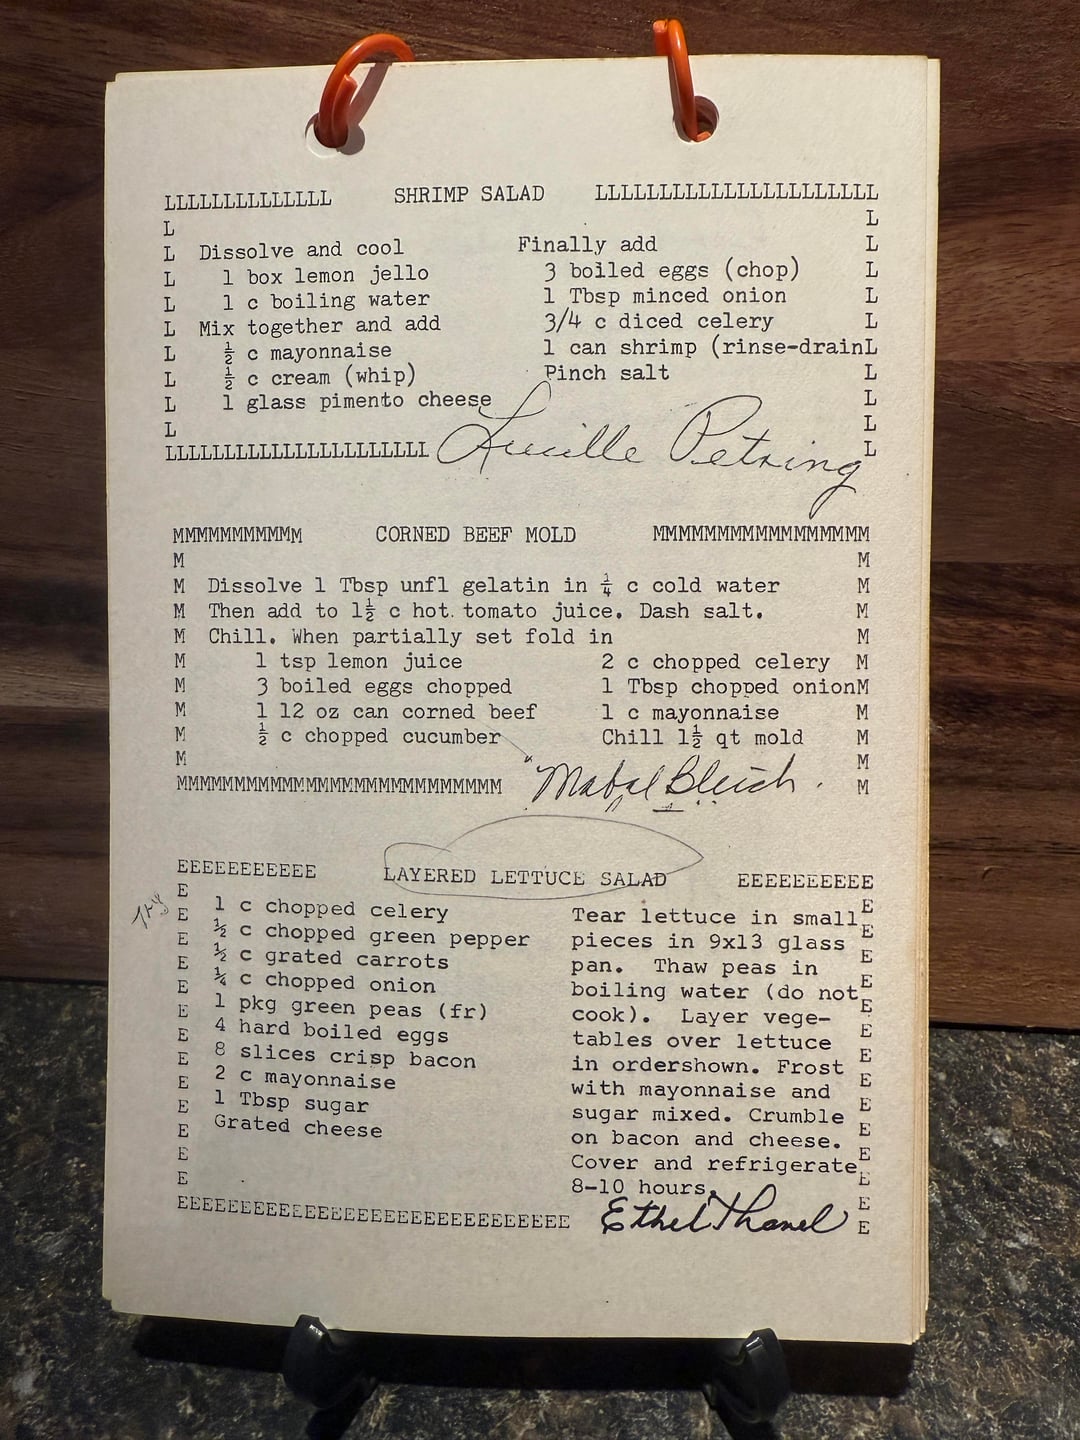 LLLLLLLLLLLLLL SHRIMP SALAD LLLLLLLLLLLLLLLLLLLLLL
L L
L Dissolve and cool Finally add L
L 1 box lemon jello 3 boiled eggs (chop) L
L 1 c boiling water 1 Tbsp minced onion L
L Mix together and add 3/4 c diced celery L
L ½ c mayonnaise 1 can shrimp (rinse-drainL
L ½ c cream (whip) Pinch salt L
L 1 glass pimento cheese L
L L
LLLLLLLLLLLLLLLLLLLLLL Lucille Petring L
MMMMMMMMMMM CORNED BEEF MOLD MMMMMMMMMMMMMMMMMM
M M
M Dissolve 1 Tbsp unfl gelatin in ¼ c cold water M
M Then add to 1½ c hot tomato juice. Dash salt. M
M Chill. When partially set fold in M
M 1 tsp lemon juice 2 c chopped celery M
M 3 boiled eggs chopped 1 Tbsp chopped onionM
M 1 12 oz can corned beef 1 c mayonnaise M
M ½ c chopped cucumber Chill 1½ qt mold M
M M
MMMMMMMMMMMMMMMMMMMMMMMMMMM Mabel Bleich. M
EEEEEEEEEEE LAYERED LETTUCE SALAD EEEEEEEEEE
E
Try
E 1 c chopped celery Tear lettuce in small E
E ½ c chopped green pepper pieces in 9x13 glass E
E ½ c grated carrots pan. Thaw peas in E
E ¼ c chopped onion boiling water (do not E
E 1 pkg green peas (fr) cook). Layer vege- E
E 4 hard boiled eggs tables over lettuce E
E 8 slices crisp bacon in ordershown. Frost E
E 2 c mayonnaise with mayonnaise and E
E 1 Tbsp sugar sugar mixed. Crumble E
E Grated cheese on bacon and cheese. E
E Cover and refrigerate E
E 8-10 hours. E
EEEEEEEEEEEEEEEEEEEEEEEEEEEEEEE Ethel Thanel E